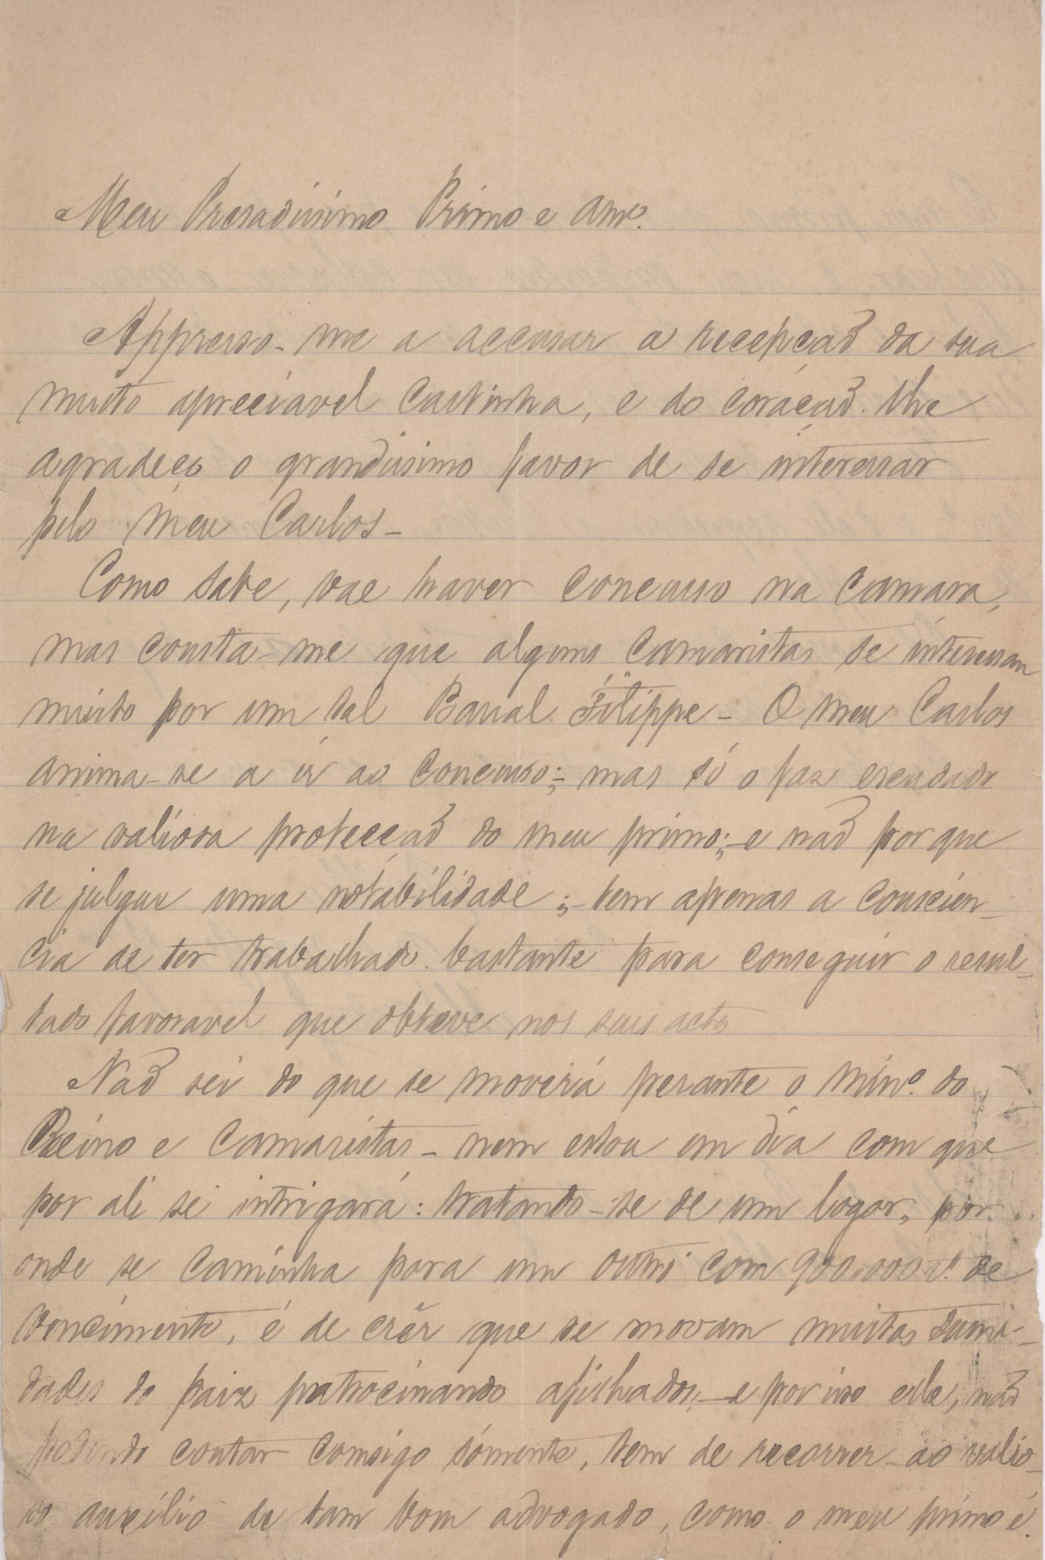 Meu Presadissimo Primo e Amº.
Appresso-me a accusar a recepção da sua
muito apreciavel cartinha, e do coração lhe
agradeço o grandissimo favor de se interessar
pelo meu Carlos-
Como sabe, vae haver concurso na Camara,
mas consta-me que alguns camaristas se interessam
muito por um tal Filippe- O meu Carlos
anima-se a ir ao concurso;- mas só o faz escudado
na valiosa protecção do meu primo;-e não porque
se julgue uma notabilidade;- tem apenas a conscien-
cia de ter trabalhado bastante para conseguir o resul-
tado favoravel que obteve nos seus actos
Não sei do que se moverá perante o Minº. do
Reino e Camaristas- nem estou em dia com que
por ali se intrigará: tratando-se de um logar, por
onde se caminha para um outro com 900.000 rs. de
vencimento, é de crêr que se movam muitas
do paiz patrocinando afilhados,-e por isso elle, não
podendo contar comsigo sómente, tem de recorrer ao valio-
so auxilio de tam bom advogado, como o meu primo é.